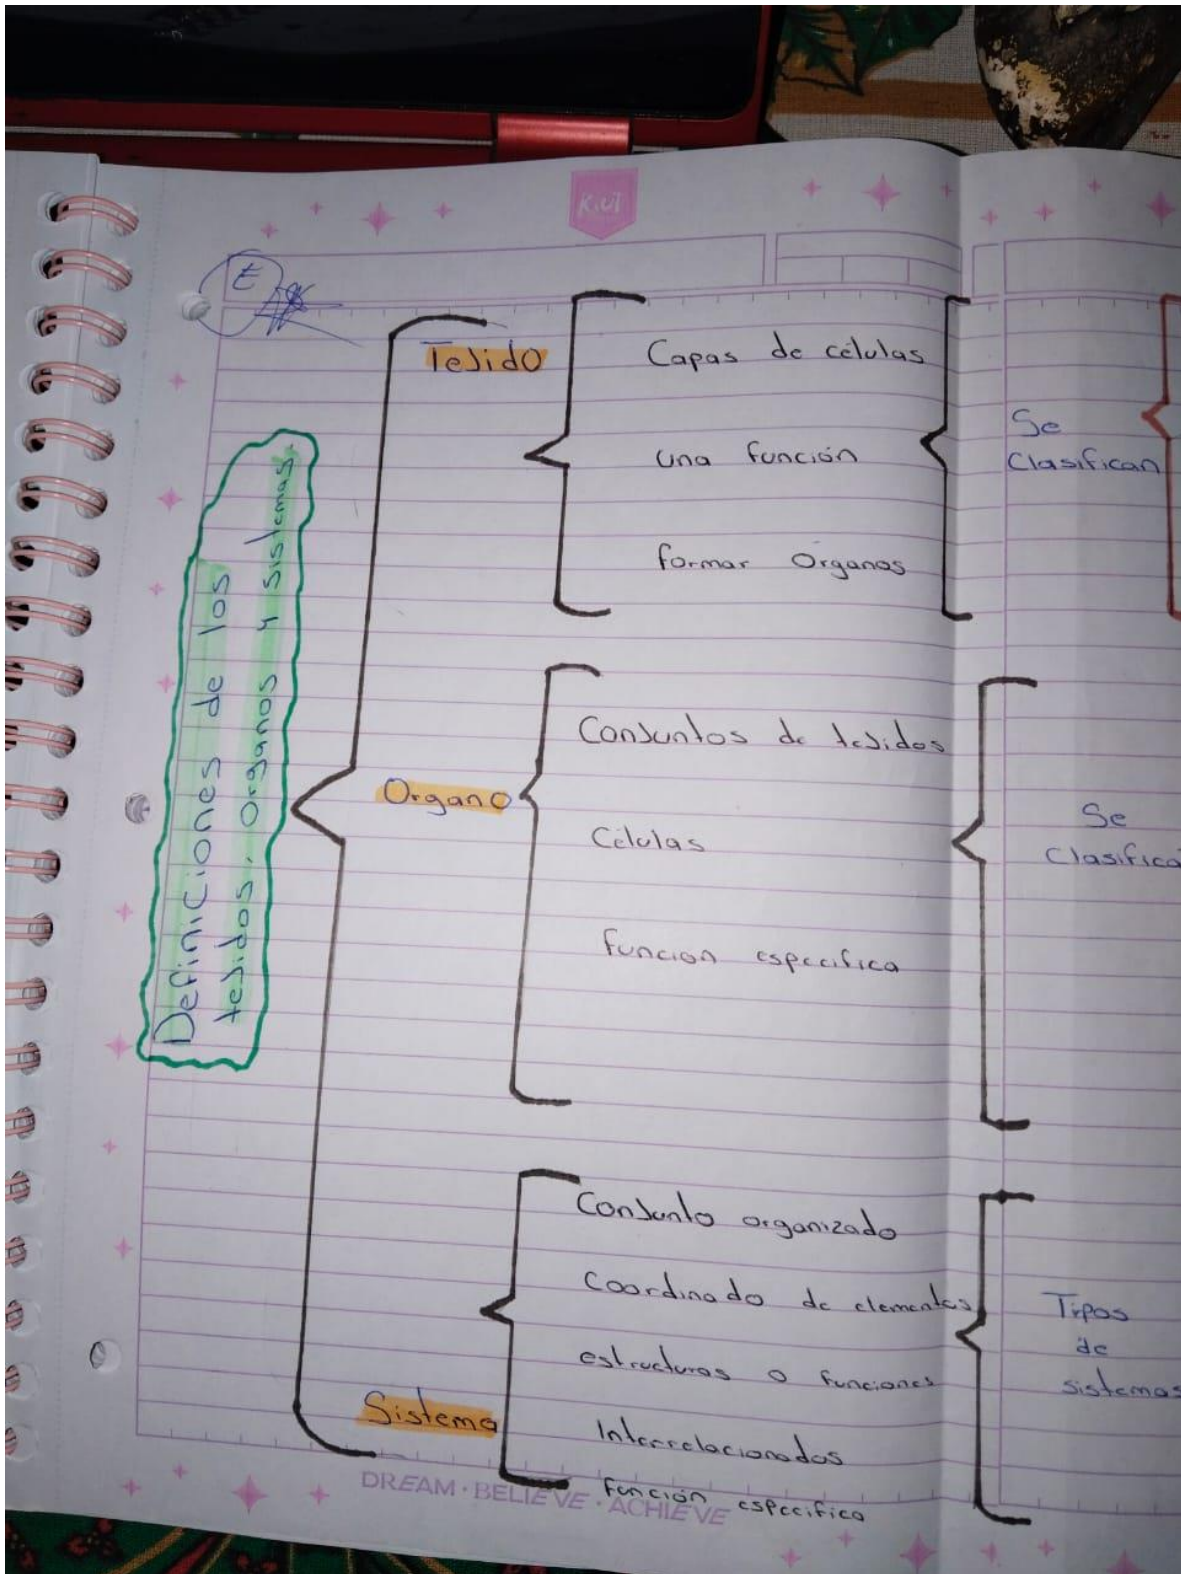 Kiut
E
Definiciones de los
tejidos, organos y sistemas.
Tejido
Capas de células
una función
formar Organos
Se
Clasifican
Organo
Conjuntos de tejidos
Celulas
función especifica
Se
Clasifica
Sistema
Conjunto organizado
Coordinado de elementos
estructuras o funciones
Interrelacionados
función especifica
Tipos
de
sistemas
DREAM · BELIEVE · ACHIEVE